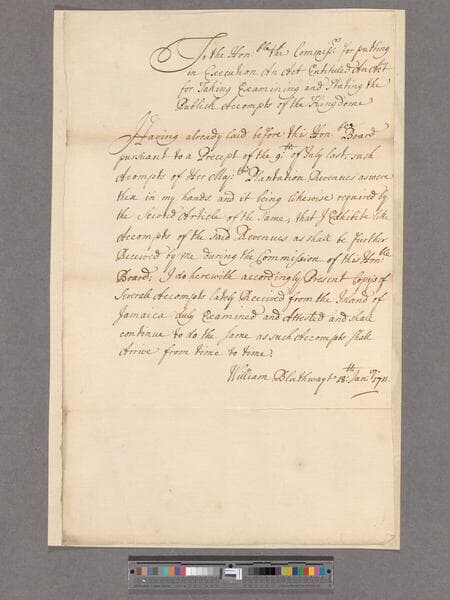 To the Hon:ble the Commiss:rs for putting
in Execution An Act Entituled An Act
for Taking Examining and Stating the
Publick Accompts of the Kingdome
Having already laid before this Hon:ble Board
pursuant to a Precept of the 9:th of July last, such
Acompts of Her Maj:ties Plantation Revenues as were
then in my hands and it being likewise required by
the Second Article of the Same, that I Exhibite like
Accompts of the said Revenues as shall be further
Received by me during the Commission of this Hon:ble
Board; I do herewith accordingly Present Copies of
Severall Accompts lately Received from the Island of
Jamaica duly Examined and Attested and shall
continue to do the same as such Accompts shall
Arrive from time to time.
William Blathwayt 18:th Jan:ry 1711.